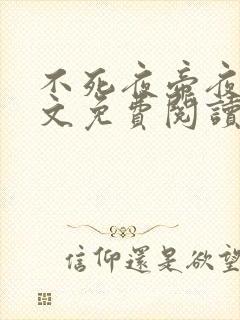 不死夜帝夜
文免費閱讀
信仰還是欲望